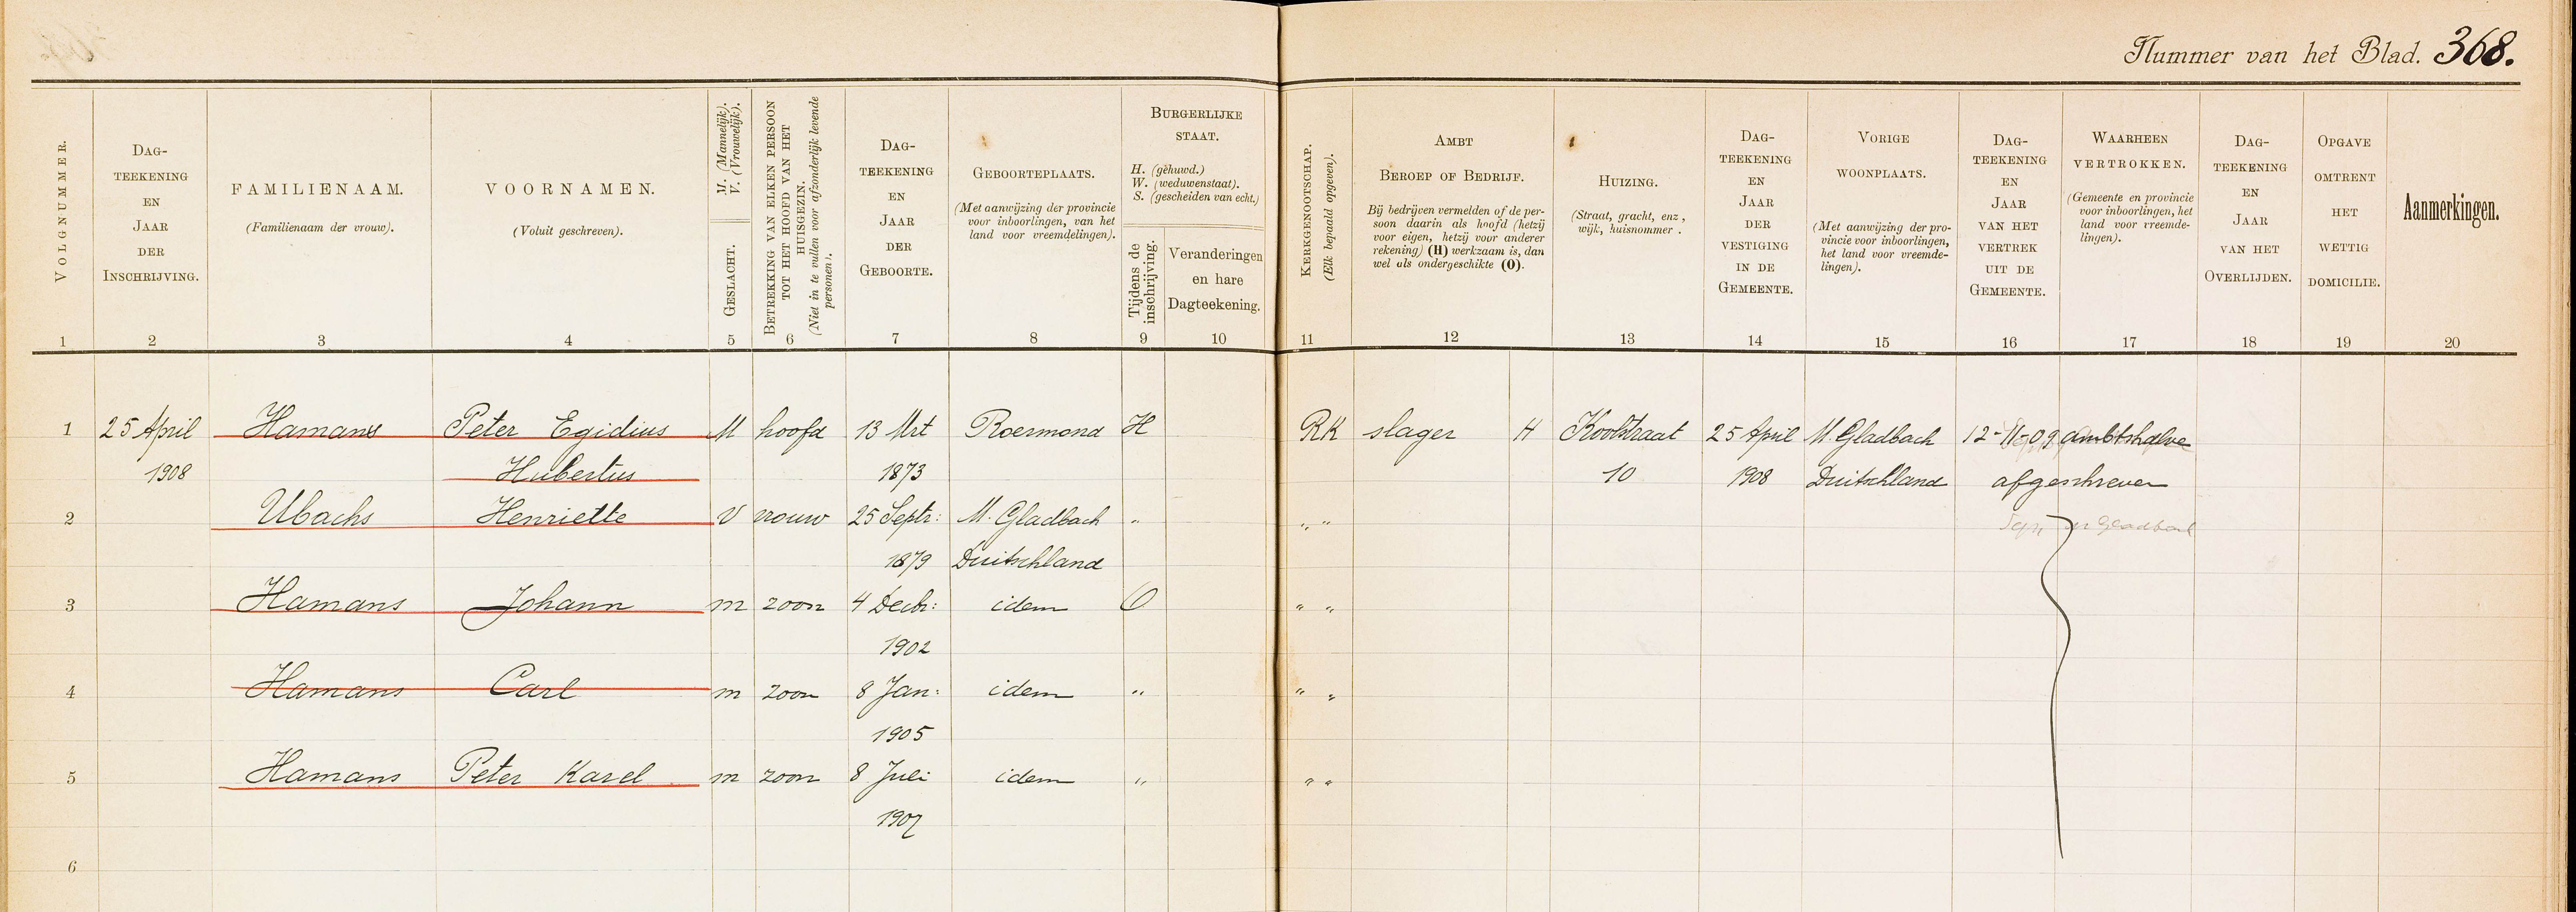 Nummer van het Blad. 368.
VOLGNUMMER.
DAG-
TEEKENING
EN
JAAR
DER
INSCHRIJVING.
FAMILIENAAM.
(Familienaam der vrouw).
VOORNAMEN.
(Voluit geschreven).
M. (Mannelijk).
V. (Vrouwelijk).
GESLACHT.
BETREKKING VAN ELKEN PERSOON
TOT HET HOOFD VAN HET
HUISGEZIN.
(Niet in te vullen voor afzonderlijk levende
personen).
DAG-
TEEKENING
EN
JAAR
DER
GEBOORTE.
GEBOORTEPLAATS.
(Met aanwijzing der provincie
voor inboorlingen, van het
land voor vreemdelingen).
BURGERLIJKE
STAAT.
H. (gehuwd.)
W. (weduwenstaat).
S. (gescheiden van echt.)
Tijdens de
inschrijving.
Veranderingen
en hare
Dagteekening.
KERKGENOOTSCHAP.
(Elk bepaald opgeven).
AMBT
BEROEP OF BEDRIJF.
Bij bedrijven vermelden of de per-
soon daarin als hoofd (hetzij
voor eigen, hetzij voor anderer
rekening) (H) werkzaam is, dan
wel als ondergeschikte (O).
HUIZING.
(Straat, gracht, enz,
wijk, huisnommer.
DAG-
TEEKENING
EN
JAAR
DER
VESTIGING
IN DE
GEMEENTE.
VORIGE
WOONPLAATS.
(Met aanwijzing der pro-
vincie voor inboorlingen,
het land voor vreemde-
lingen).
DAG-
TEEKENING
EN
JAAR
VAN HET
VERTREK
UIT DE
GEMEENTE.
WAARHEEN
VERTROKKEN.
(Gemeente en provincie
voor inboorlingen, het
land voor vreemde-
lingen).
DAG-
TEEKENING
EN
JAAR
VAN HET
OVERLIJDEN.
OPGAVE
OMTRENT
HET
WETTIG
DOMICILIE.
Aanmerkingen.
1 2 3 4 5 6 7 8 9 10 11 12 13 14 15 16 17 18 19 20
1 25 April Hamans Peter Egidius M hoofd 13 Mrt Roermond H RK slager H Koolstraat 25 April M. Gladbach 12-11-09 ambtshalve
1908 Hubertus 1873 10 1908 Duitschland afgeschreven
2 Ubachs Henriette V vrouw 25 Septr: M. Gladbach " " " Gladbach
1879 Duitschland
3 Hamans Johann m zoon 4 Decbr: idem O " "
1902
4 Hamans Carl m zoon 8 Jan: idem " " "
1905
5 Hamans Peter Karel m zoon 8 Juli idem " " "
1907
6